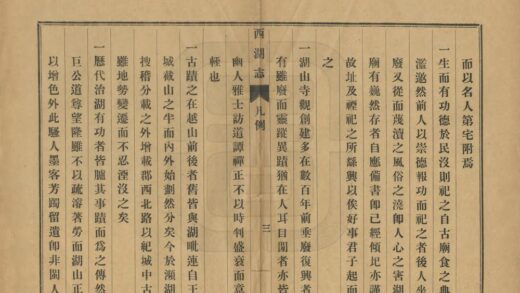 而以名人第宅附焉
一生而有功德於民沒則祀之自古廟食之典
濫邀然前人以崇德報功而祀之者後人坐
廢又從而蔑瀆之風俗之澆卽人心之害湖
廟有巍然存者自應備書卽已經傾圮亦謹
故址及禋祀之所繇興以俟好事君子起而
之
一湖山寺觀創建多在數百年前乘廢復興者
有雖廢而靈蹤異蹟猶在人耳目閒者亦皆
幽人雅士訪道譚禪正不以時判盛衰而意
軽也
西湖志
凡例
三
一古蹟之在越山前後者舊皆與湖毗連自王
城截山之半而內外始劃然分矣今於瀕湖
搜稽分載之外增載郡西北路以紀城中古
雖地勢變遷而不忍湮沒之矣
一歷代治湖有功者皆臚其事蹟而爲之傳然
巨公道尊望隆雖不以疏濬著勞而湖山正
以增色外此騷人墨客芳躅留遺卽非閩人